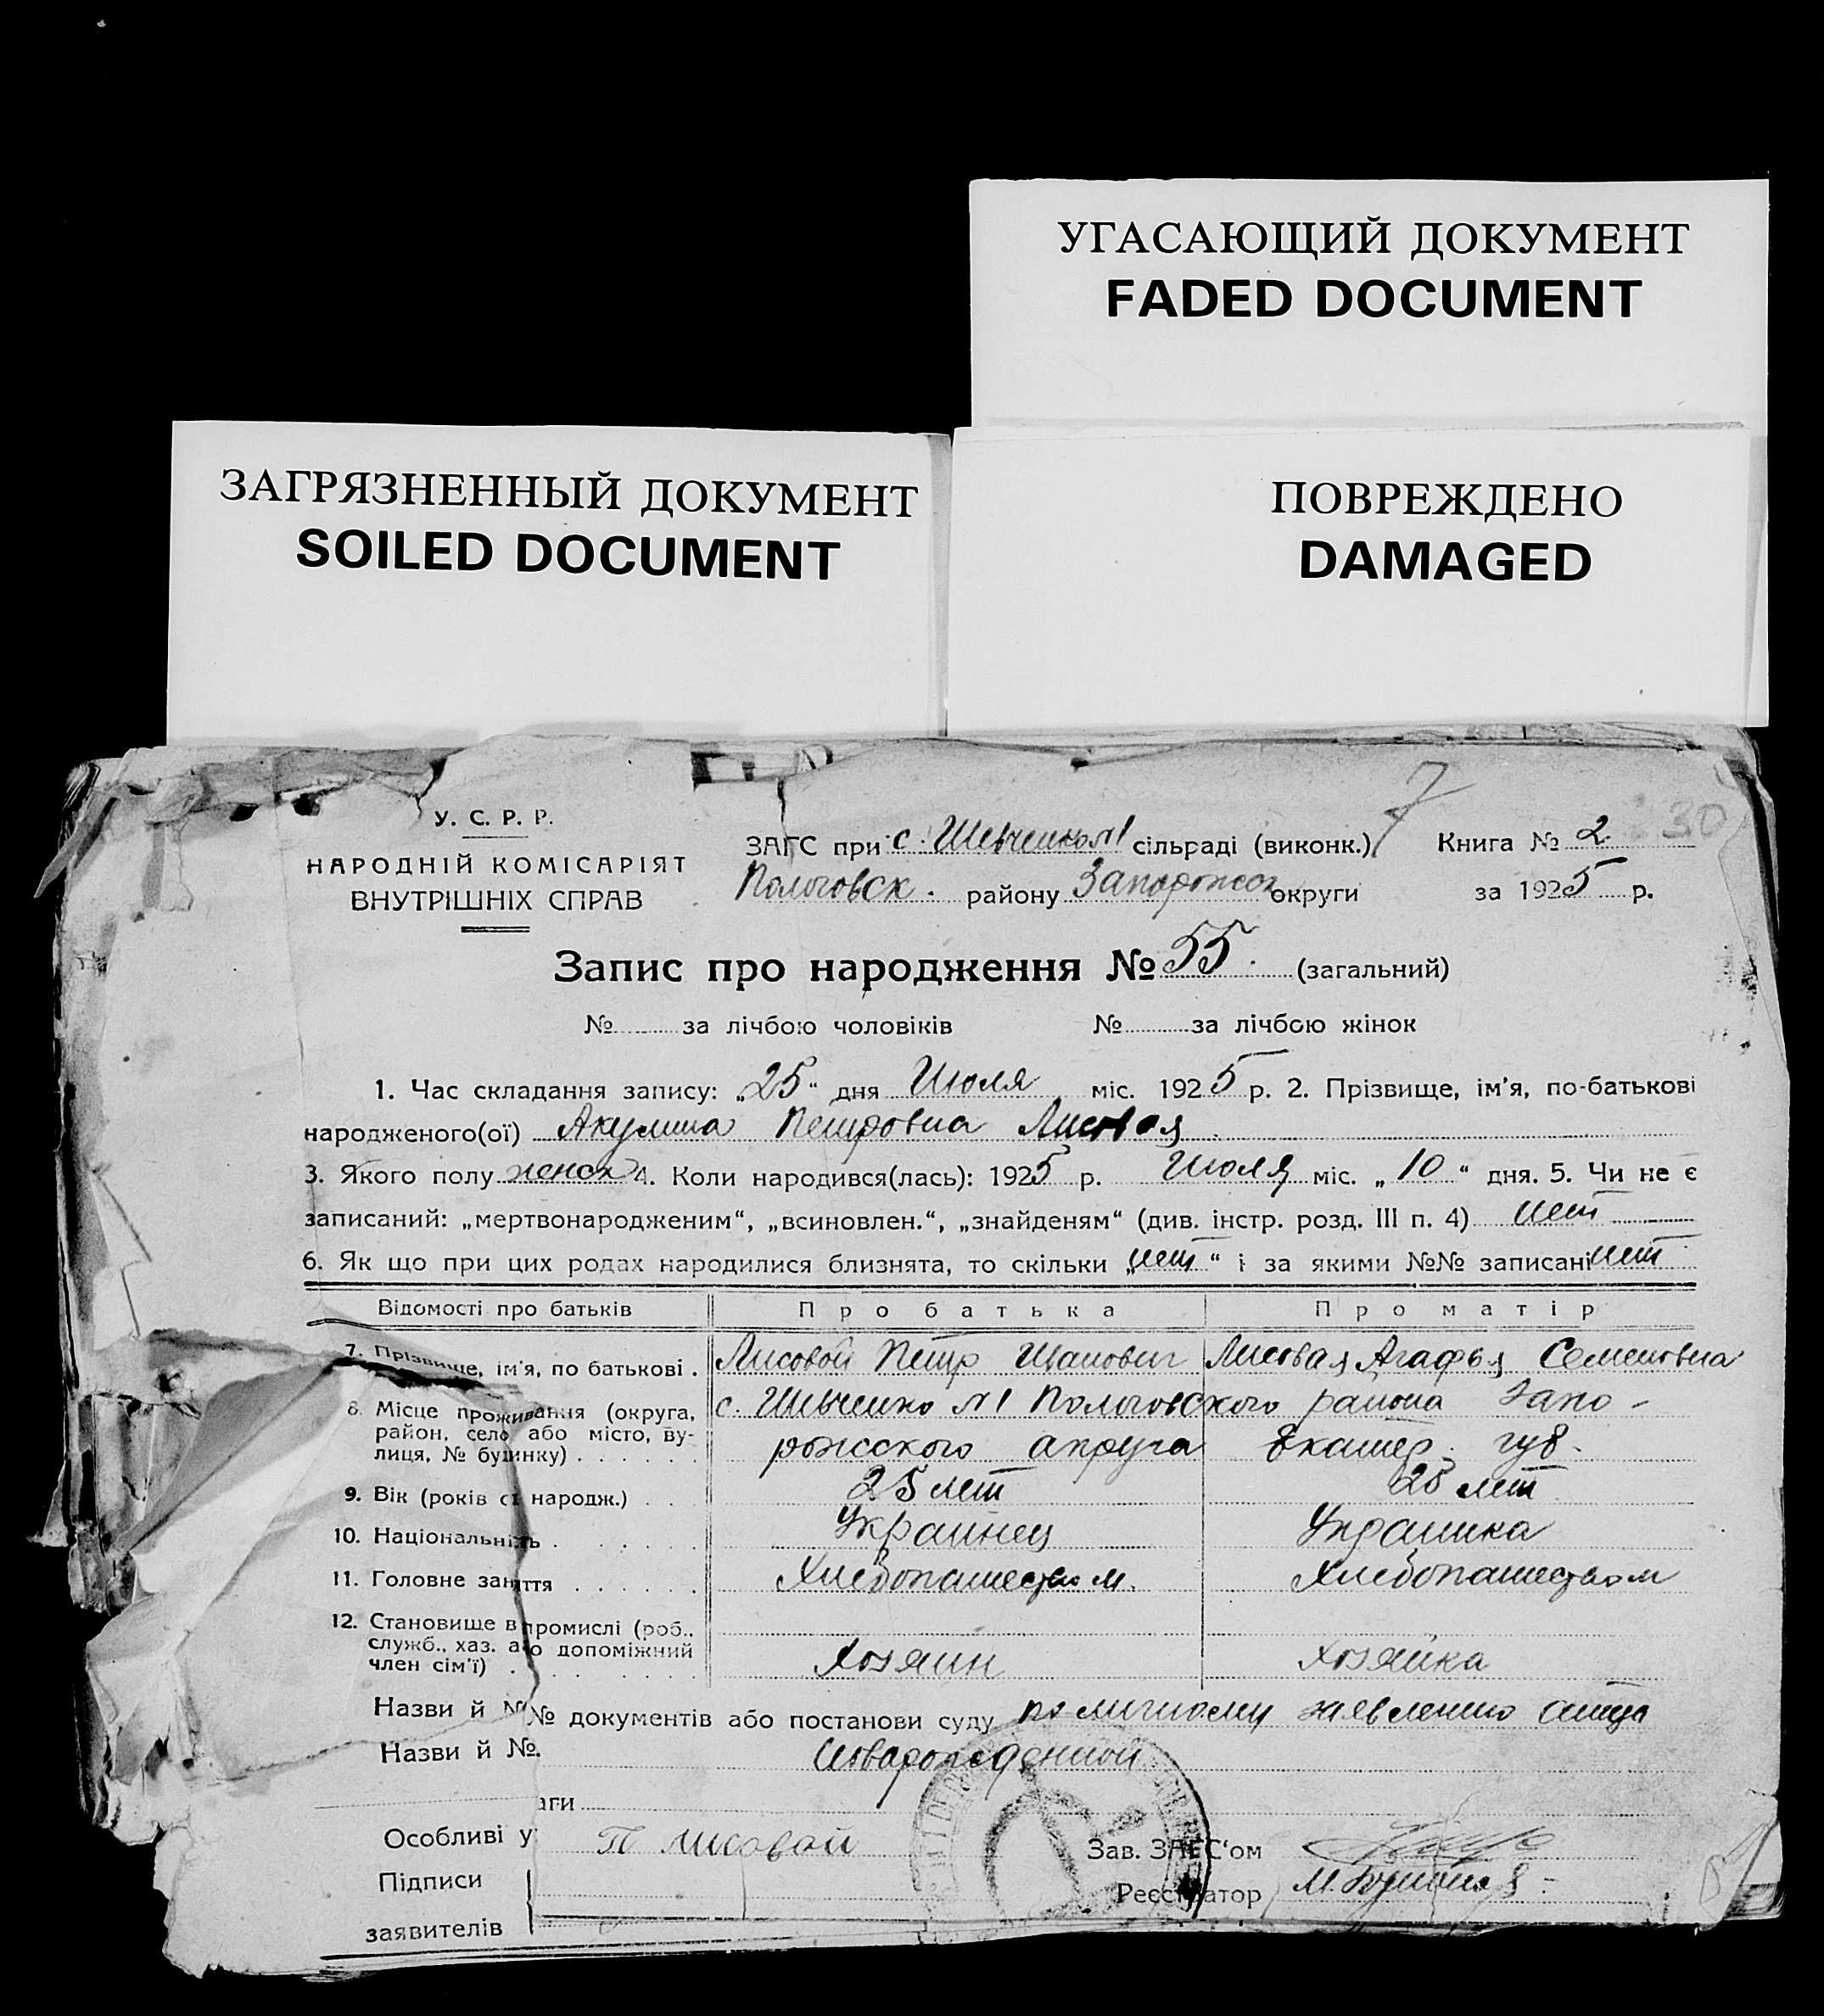 УГАСАЮЩИЙ ДОКУМЕНТ
FADED DOCUMENT
ЗАГРЯЗНЕННЫЙ ДОКУМЕНТ
SOILED DOCUMENT
ПОВРЕЖДЕНО
DAMAGED
7
30
У. С. Р. Р.
НАРОДНІЙ КОМІСАРІЯТ
ВНУТРІШНІХ СПРАВ
ЗАГС при с. Шевченко №1 сільраді (виконк.)
Пологовск. району Запорожск округи
Книга № 2
за 1925 р.
Запис про народження № 55. (загальний)
№ за лічбою чоловіків № за лічбою жінок
1. Час складання запису: „25“ дня Июля міс. 1925 р. 2. Прізвище, ім'я, по-батькові
народженого(ої) Акулина Петровна Лисовая
3. Якого полу женск 4. Коли народився(лась): 1925 р. Июля міс. „10“ дня. 5. Чи не є
записаний: „мертвонародженим“, „всиновлен.“, „знайденям“ (див. інстр. розд. III п. 4) нет
6. Як що при цих родах народилися близнята, то скільки „нет“ і за якими №№ записані нет
Відомості про батьків Про батька Про матір
7. Прізвище, ім'я, по батькові . Лисовой Петр Иванович Лисовая Агафья Семеновна
8. Місце проживання (округа, с. Шевченко №1 Пологовского района Запо-
район, село або місто, ву-
лиця, № будинку) рожского округа Екатер. губ.
9. Вік (років народж.) 25 лет 28 лет
10. Національність Украинец Украинка
11. Головне заняття Хлебопашеством. Хлебопашеством
12. Становище в промислі (роб.,
служб., хаз. або допоміжний
член сім'ї) Хозяин Хозяйка
Назви й №№ документів або постанови суду по личному заявлению отца
Назви й №. новорожденной
аги
Особливі у П Лисовой Зав. ЗАГС'ом
Підписи Реєстратор М.
заявителів